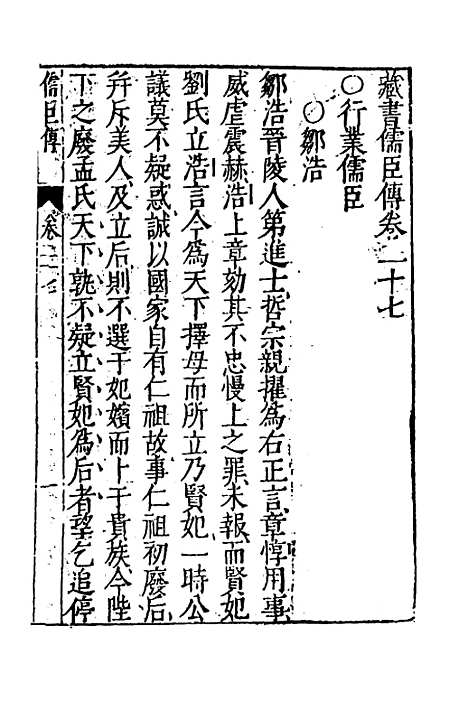 藏書儒臣傳卷二十七
○行業儒臣
○鄒浩
鄒浩晉陵人第進士哲宗親擢為右正言章惇用事
威虐震赫浩上章劾其不忠慢上之罪未報而賢妃
劉氏立浩言今為天下擇母而所立乃賢妃一時公
議莫不疑惑誠以國家自有仁祖故事仁祖初廢后
并斥美人及立后則不選于妃嬪而卜于貴族今陛
下之廢孟氏天下孰不疑立賢妃為后者望乞追停
儒臣傳
卷二十七
一